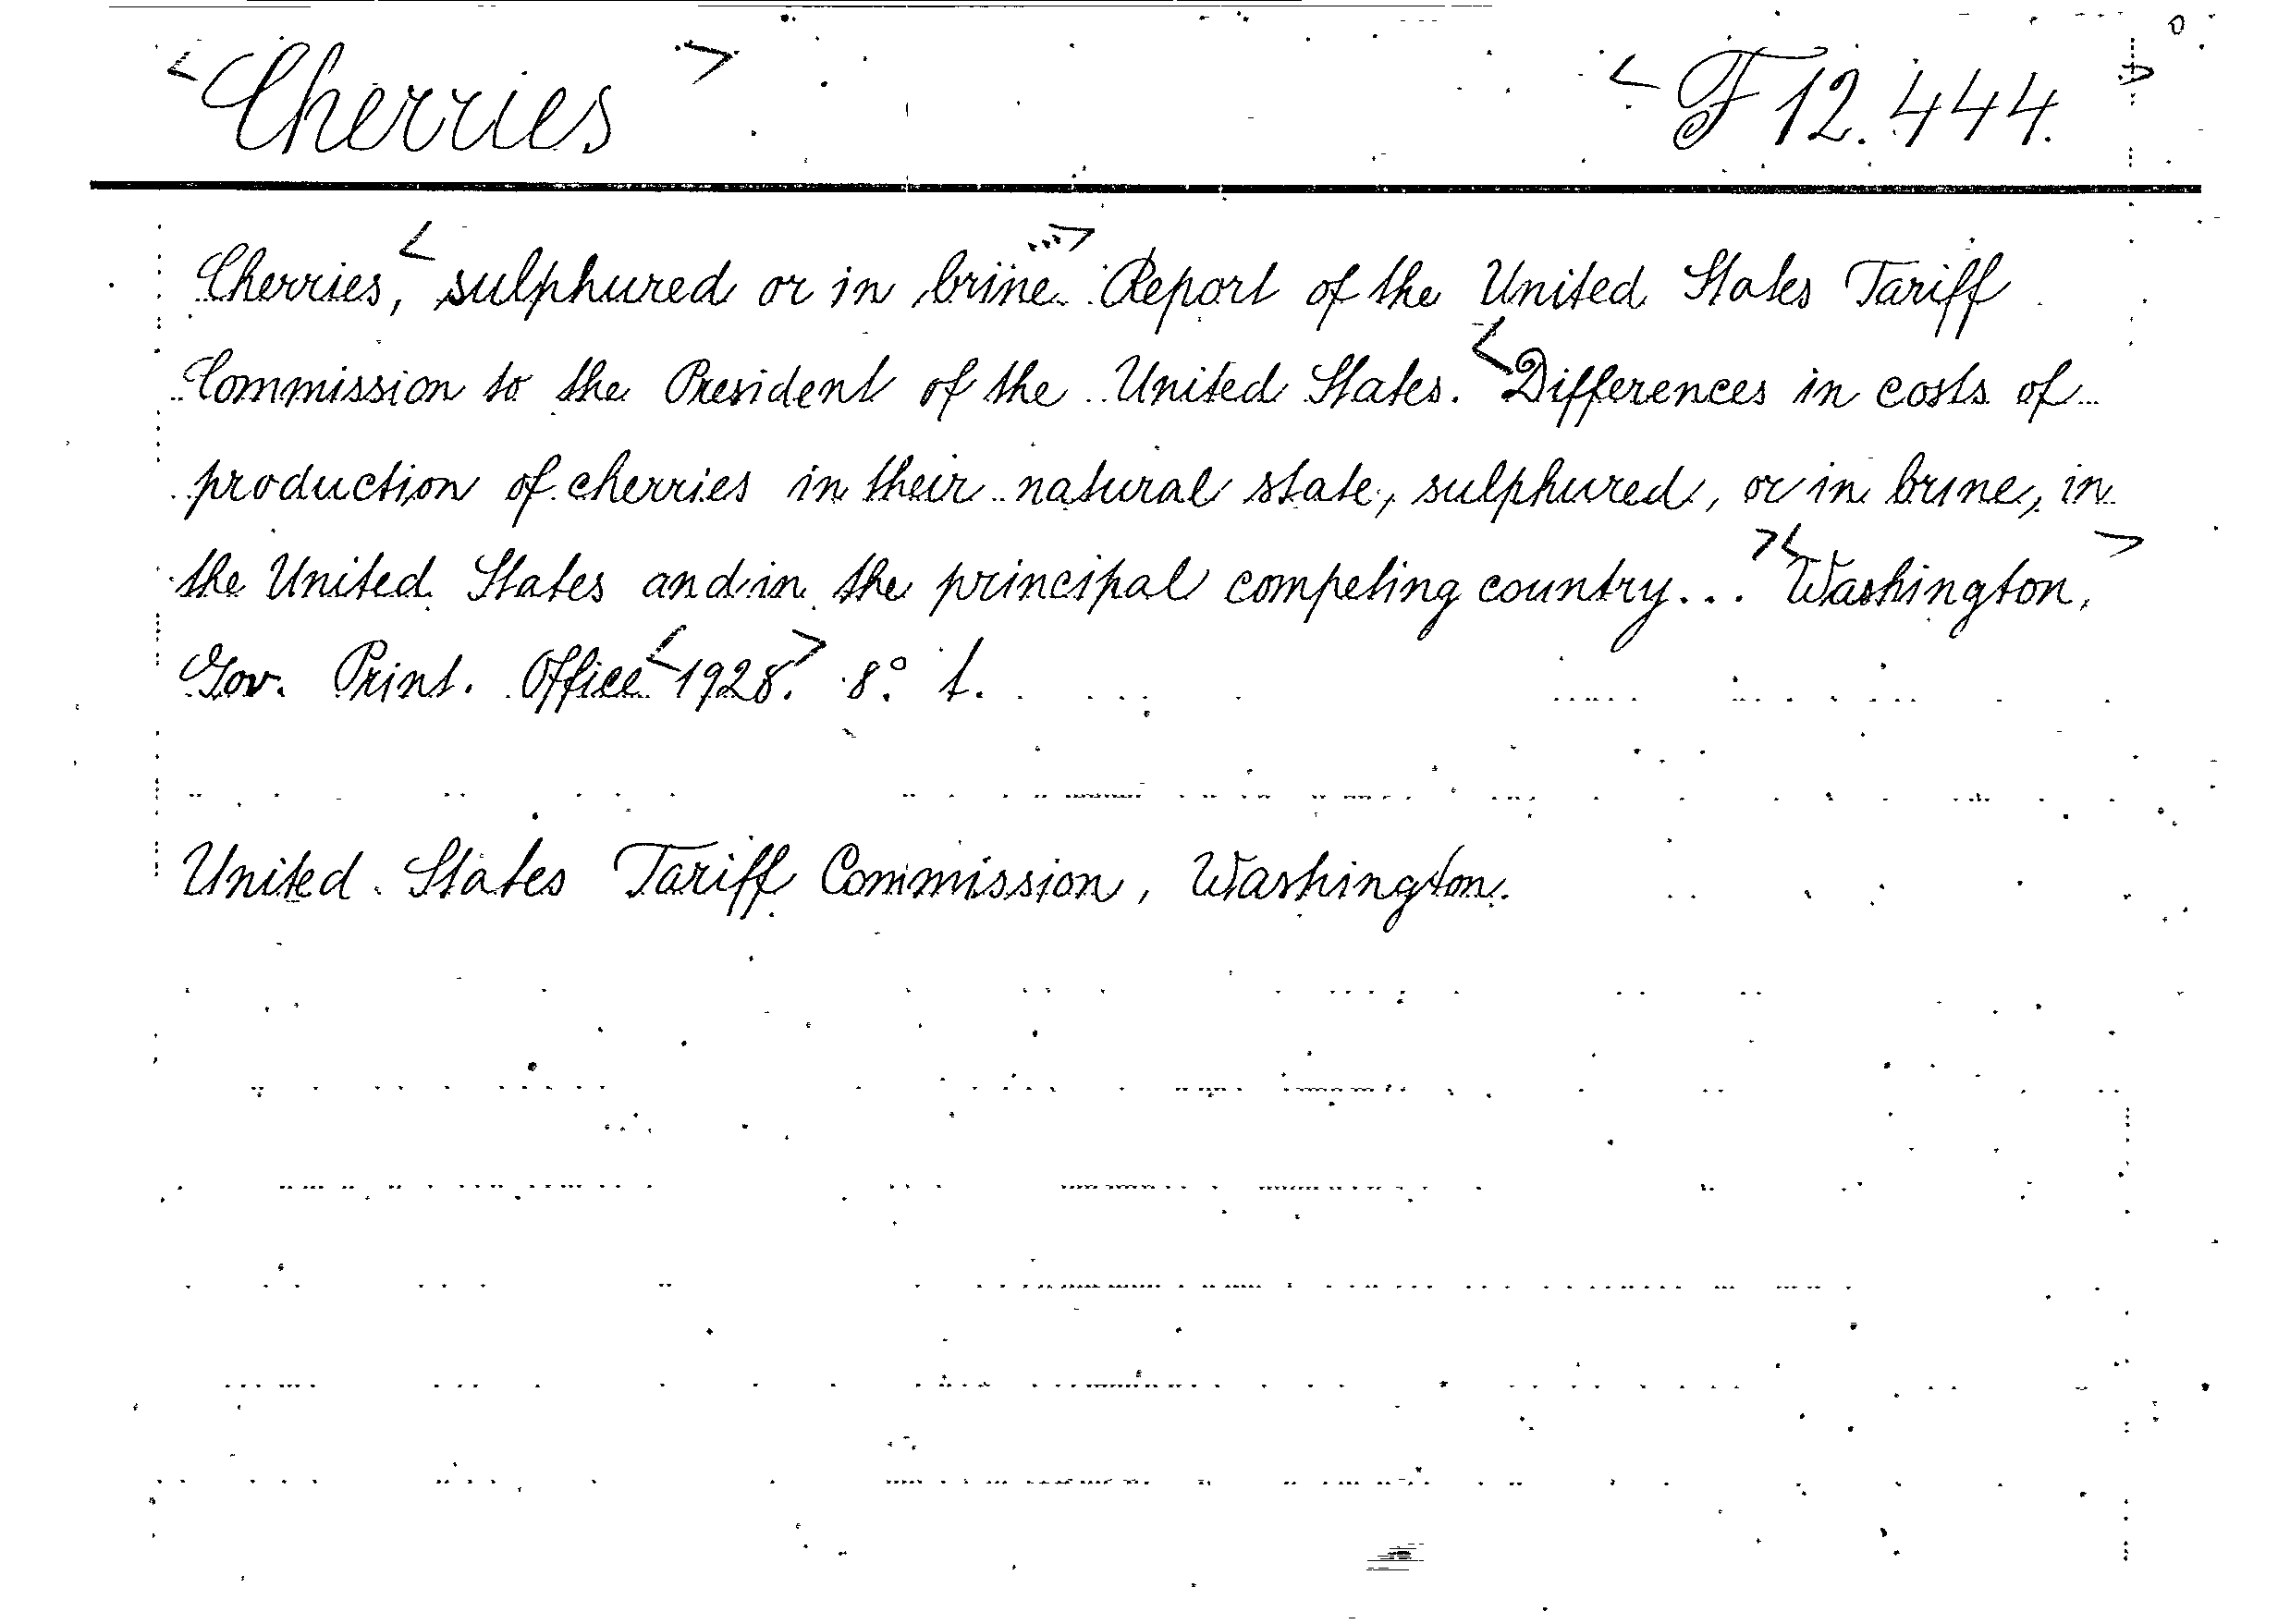 <Cherries> <F 12.444.>
Cherries, <sulphured or in brine...> Report of the United States Tariff
Commission to the President of the United States. <Differences in costs of
production of cherries in their natural state, sulphured, or in brine, in
the United States and in the principal competing country...> <Washington,>
Gov. Print. Office <1928.> 8° t.
United States Tariff Commission, Washington.